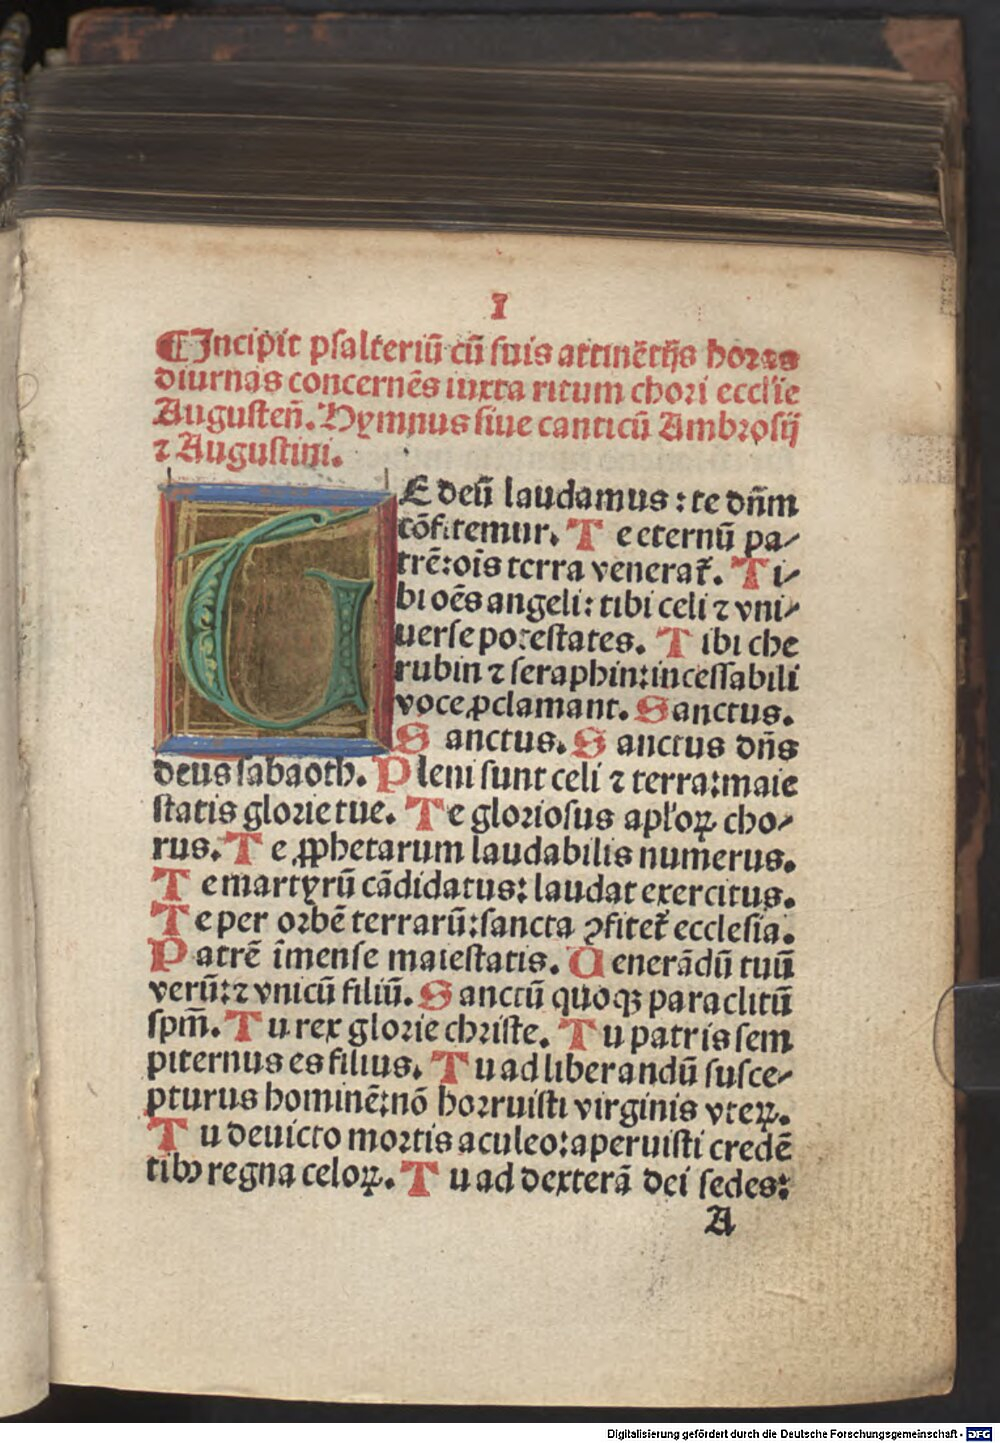 I
¶Incipit pſalteriū cū ſuis attinētijs horas
diurnas concernēs iuxta ritum chori eccl'ie
Auguſteñ. Hymnus ſiue canticū Ambroſij
⁊ Auguſtini.
TE deū laudamus : te dn̄m
cōfitemur. Te eternū pa⸗
trē:oīs terra venerat᷑. Ti⸗
bi oēs angeli: tibi celi ⁊ vni⸗
uerſe poteſtates. Tibi che
rubin ⁊ ſeraphin:inceſſabili
voce ꝓclamant. Sanctus.
Sanctus. Sanctus dn̄s
deus ſabaoth. Pleni ſunt celi ⁊ terra:maie
ſtatis glorie tue. Te glorioſus apl'oꝝ cho⸗
rus. Te ꝓphetarum laudabilis numerus.
Te martyrū cādidatus: laudat exercitus.
Te per orbē terrarū:ſancta ꝯfitet᷑ eccleſia.
Patrē īmenſe maieſtatis. Uenerādū tuū
verū:⁊ vnicū filiū. Sanctū quoqꝫ paraclitū
ſpm̄. Tu rex glorie chriſte. Tu patris ſem
piternus es filius. Tu ad liberandū ſuſce⸗
pturus hominē:nō horruiſti virginis vteꝝ.
Tu deuicto mortis aculeo:aperuiſti credē
tibꝰ regna celoꝝ. Tu ad dexterā dei ſedes:
A
Digitalisierung gefördert durch die Deutsche Forschungsgemeinschaft - DFG